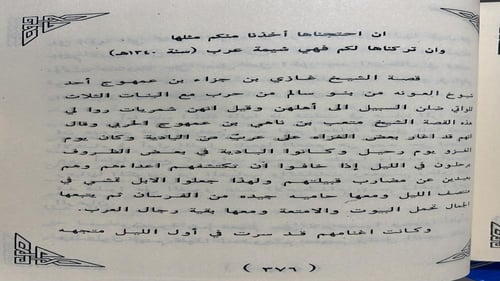 ان احتجناها أخذنا منكم مثلها
وان تركناها لكم فهي شيمة عرب (سنة ١٣٤٠هـ)
قصة الشيخ غازي بن جزاء بن عمهوج أحد
شيوخ العونه من بنو سالم من حرب مع البنات الثلاث
اللواتي ضلن السبيل الى أهلهن وقيل انهن شمريات روا لي
هذه القصة الشيخ متعب بن ناهي بن عمهوج الحربي وقال
انهم قد اغار بعض الغزاه على عرب من البادية وكان يوم
الغزو يوم رحيل وكانوا البادية في بعض الظروف
يرحلون في الليل إذا خافوا أن تكتشفهم اعداءهم وهم
بعيدين عن مضارب قبيلتهم ولهذا جعلوا الابل تمشي في
منتصف الليل ومعها حاميه جيده من الفرسان ثم يتبعها
الجمال تحمل البيوت والامتعة ومعها بقية رجال العرب.
وكانت اغنامهم قد سرت في أول الليل متجهه
(٣٧٦)